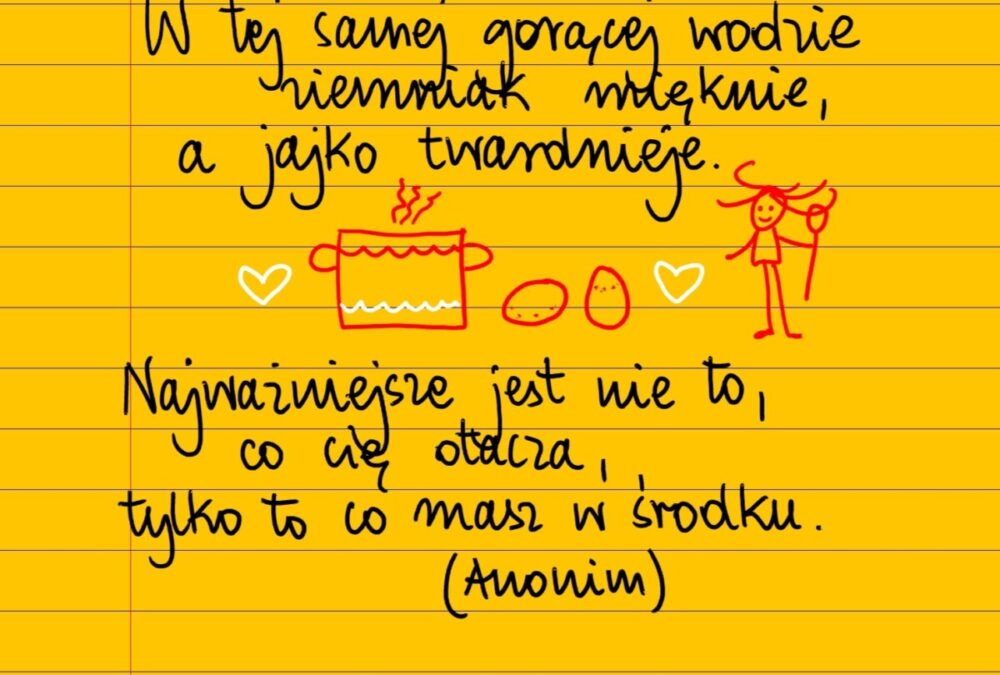 W tej samej gorącej wodzie
ziemniak mięknie,
a jajko twardnieje.
Najważniejsze jest nie to,
co cię otacza,
tylko to co masz w środku.
(Anonim)